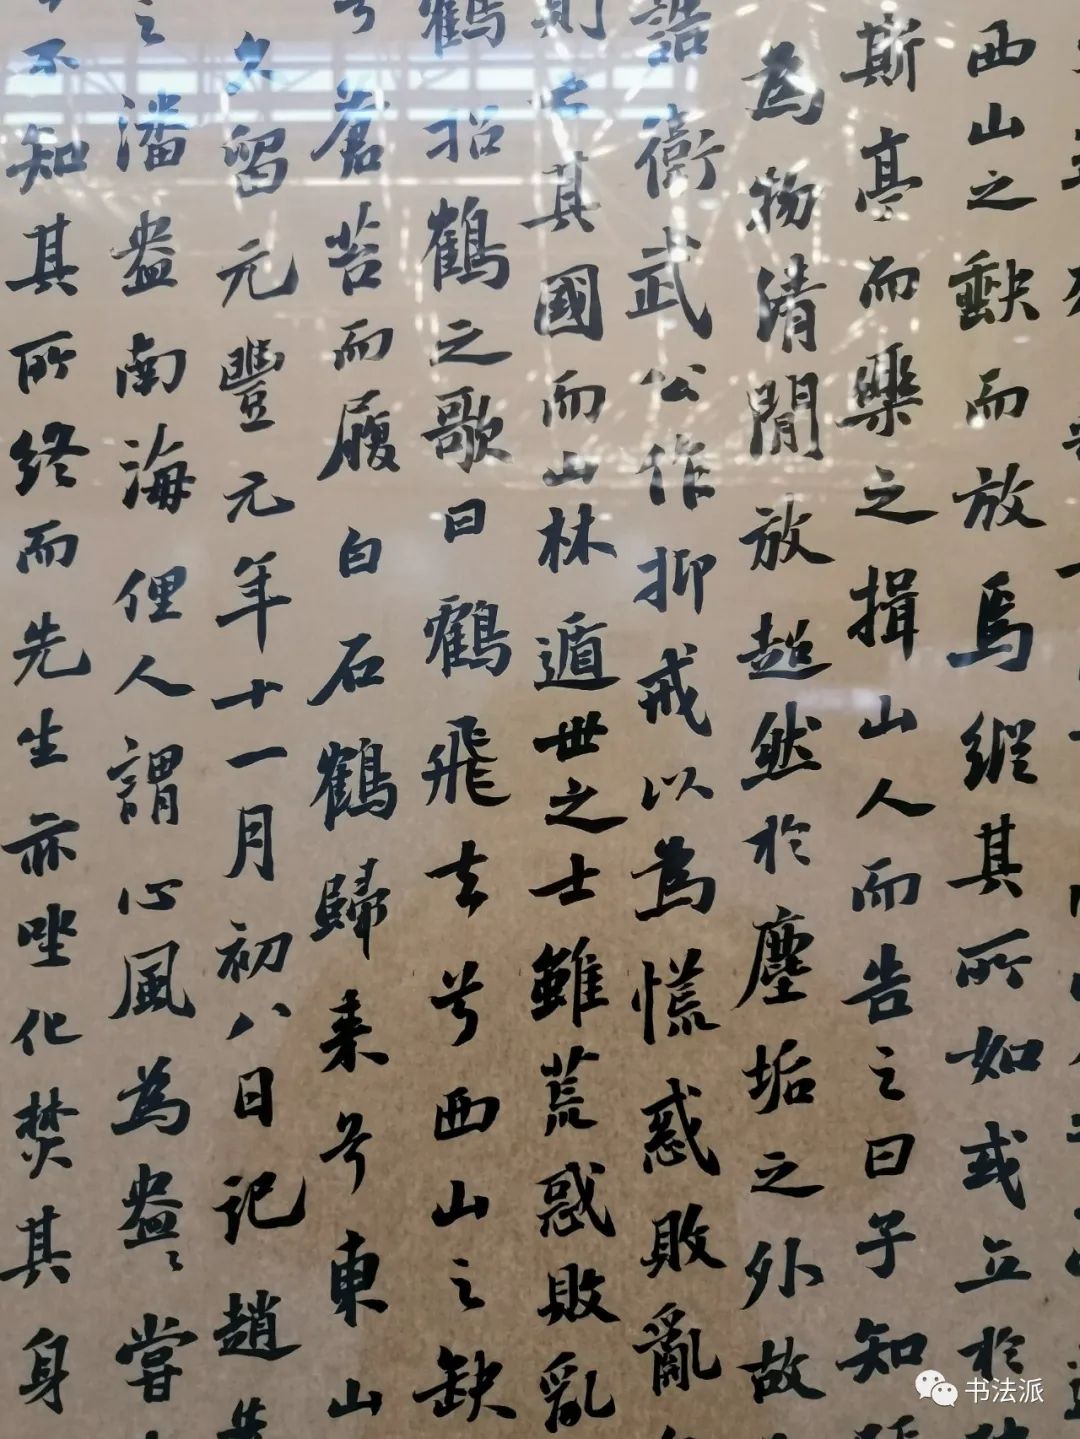 西山之缺而放焉縱其所如或立於
斯亭而樂之揖山人而告之曰子知
為物清閒放超然於塵垢之外故
誥衛武公作抑戒以為慌惑敗亂
則亡其國而山林遁世之士雖荒惑敗乱
鶴招鶴之歌曰鶴飛去兮西山之缺
兮蒼苔而履白石鶴歸来兮東山
久留元豐元年十一月初八日記趙
之潘盎南海俚人謂心風為盎〻嘗
不知其所終而先生亦唑化焚其身
书法派